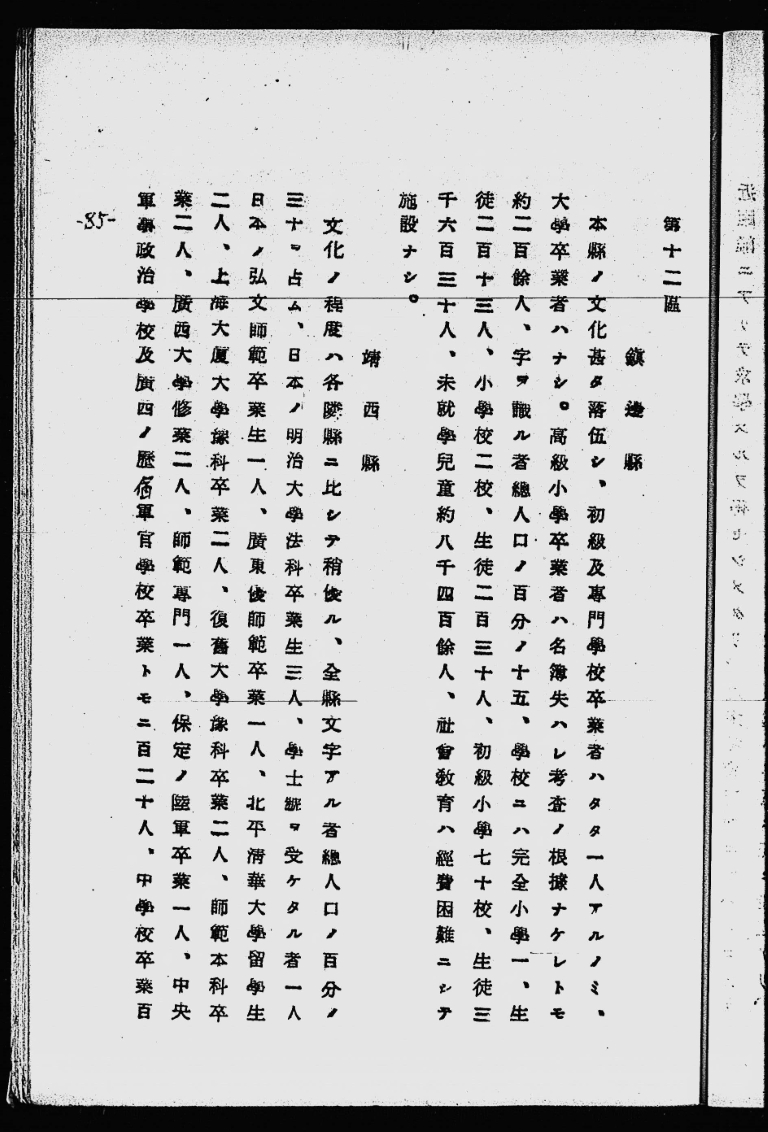 第十二區
鎭邊縣
本縣ノ文化甚タ落伍シ、初級及專門學校卒業者ハタタ一人アルノミ、
大學卒業者ハナシ。高級小學卒業者ハ名簿失ハレ考査ノ根據ナケレトモ
約二百餘人、字ヲ識ル者總人口ノ百分ノ十五、學校ニハ完全小學一、生
徒二百十三人、小學校二校、生徒二百三十人、初級小學七十校、生徒三
千六百三十人、未就學兒童約八千四百餘人、社會敎育ハ經費困難ニシテ
施設ナシ。
靖西縣
文化ノ程度ハ各隣縣ニ比シテ稍優ル、全縣文字アル者總人口ノ百分ノ
三十ヲ占ム、日本ノ明治大學法科卒業生三人、學士號ヲ受ケタル者一人
日本ノ弘文師範卒業生一人、廣東優師範卒業一人、北平清華大學留學生
二人、上海大厦大學豫科卒業二人、復舊大學豫科卒業二人、師範本科卒
業二人、廣西大學修業二人、師範專門一人、保定ノ陸軍卒業一人、中央
軍事政治學校及廣西ノ歷個軍官學校卒業トモニ百二十人、中學校卒業百
-85-